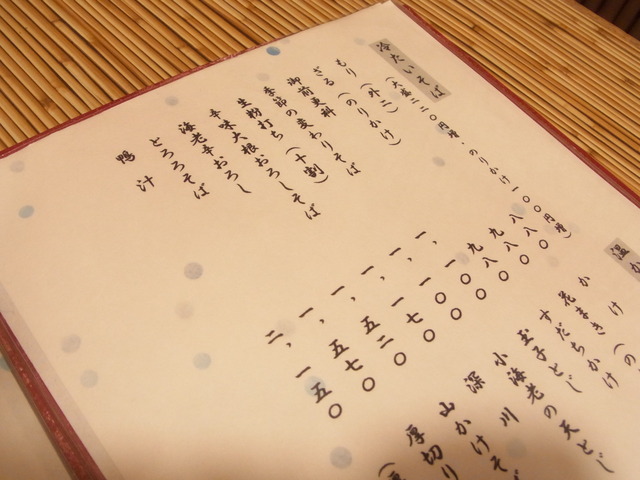 冷たいそば
(大盛二二〇円増・のりかけ一〇〇円増)
もり(外二) 八八〇
ざる(のりかけ) 九八〇
御前更科 九八〇
季節の変わりそば 一、一〇〇
生粉打ち(十割) 一、一〇〇
辛味大根おろしそば 一、一七〇
海老辛おろし 一、五二〇
とろろそば 一、五七〇
鴨汁 二、一五〇
温か
かけ(の
花まき
すだちかけ
玉子とじ
小海老の天とじ
深川
山かけそ
厚切り